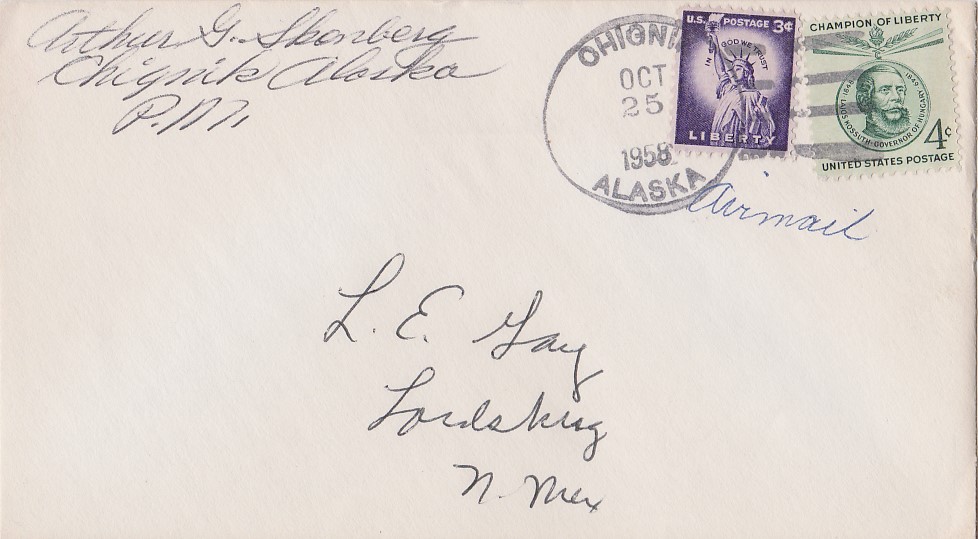 Arthur G. Skonberg
Chignik Alaska
P.M.
CHIGNIK
OCT
25
1958
ALASKA
U.S. POSTAGE 3¢
IN GOD WE TRUST
LIBERTY
CHAMPION OF LIBERTY
1848-1849 LAJOS KOSSUTH-GOVERNOR OF HUNGARY
4¢
UNITED STATES POSTAGE
Airmail
L. E. Gay
Lordsburg
N. Mex